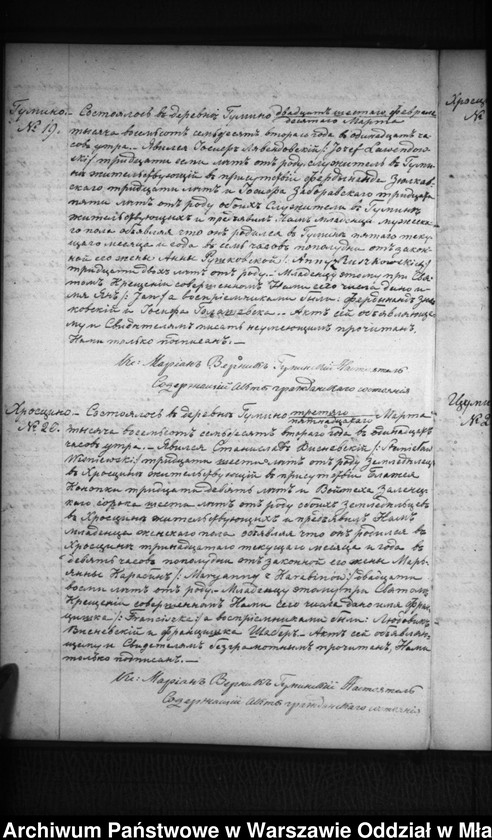 Гумино. Состоялось въ деревнѣ Гумино двадцать шестаго Февраля
№ 19. десятаго Марта
тысяча восемьсотъ семьдесятъ втораго года въ одинадцать ча
совъ утра. Явился Іосифъ Лавендовскій /: Józef Lawendow
ski/ тридцати если лѣтъ отъ роду служитель въ Гуми
нѣ жительствующій въ присутствіи Фердинанда
тридцати лѣтъ и Іосифа Заборавскаго тридцати
пяти лѣтъ отъ роду обоихъ Служители въ Гуминѣ
жительствующихъ и предъявилъ Намъ Младенца мужеска
го пола объявляя что онъ родился въ Гуминѣ пятаго теку
щаго мѣсяца и года въ семь часовъ пополудни отъ закон
ной его жены Анны Рушковской /: Anny z Ruszkowskich/
тридцати двухъ лѣтъ отъ роду. Младенцу этому при Свя
томъ Крещеніи совершенномъ Нами сего числа дано и
мя Янъ /: Jan/ а воспріемниками были: Фердинандъ
ковскій и Іосифа. Актъ сей объявляюще
му и Свидѣтелямъ писать неумеющимъ прочитанъ,
Нами только подписанъ. —
Кс: Маріанъ Гуминскій Настоятель
Содержащій Акты гражданскаго состоянія
Хросцино. Состоялось въ деревнѣ Гумино третьяго Марта
№ 20. пятнадцатаго
тысяча восемьсотъ семьдесятъ втораго года въ одинадцать
часовъ утра. Явился Станиславъ Висневскій /: Stanisław
Wiśniewski/ тридцати шести лѣтъ отъ роду Земледѣлецъ
въ Хросцинѣ жительствующій въ присутствіи Блажея
Конопки тридцати девять лѣтъ и Войтеха
каго сорока шести лѣтъ отъ роду обоихъ Земледѣльцевъ
въ Хросцинѣ жительствующихъ и предъявилъ Намъ
младенца женскаго пола объявляя что онъ родился въ
Хросцинѣ тринадцатаго текущаго мѣсяца и года въ
девять часовъ пополудни отъ законной его жены Марь
янны Карабинъ /: Maryanny z Karabinów/ двадцати
восьми лѣтъ отъ роду. Младенцу этому при Святомъ
Крещеніи совершенномъ Нами сего числа дано имя Фран
цишка /: Franciszka/ а воспріемниками были: Людовикъ
Висневскій и Францишка. Актъ сей объявляю
щему и Свидетелямъ безграмотнымъ прочитанъ, Нами
только подписанъ. —
Кс: Маріанъ Гуминскій Настоятель
Содержащій Акты гражданскаго состоянія
№
№ 2
Archiwum Państwowe w Warszawie Oddział w Mła